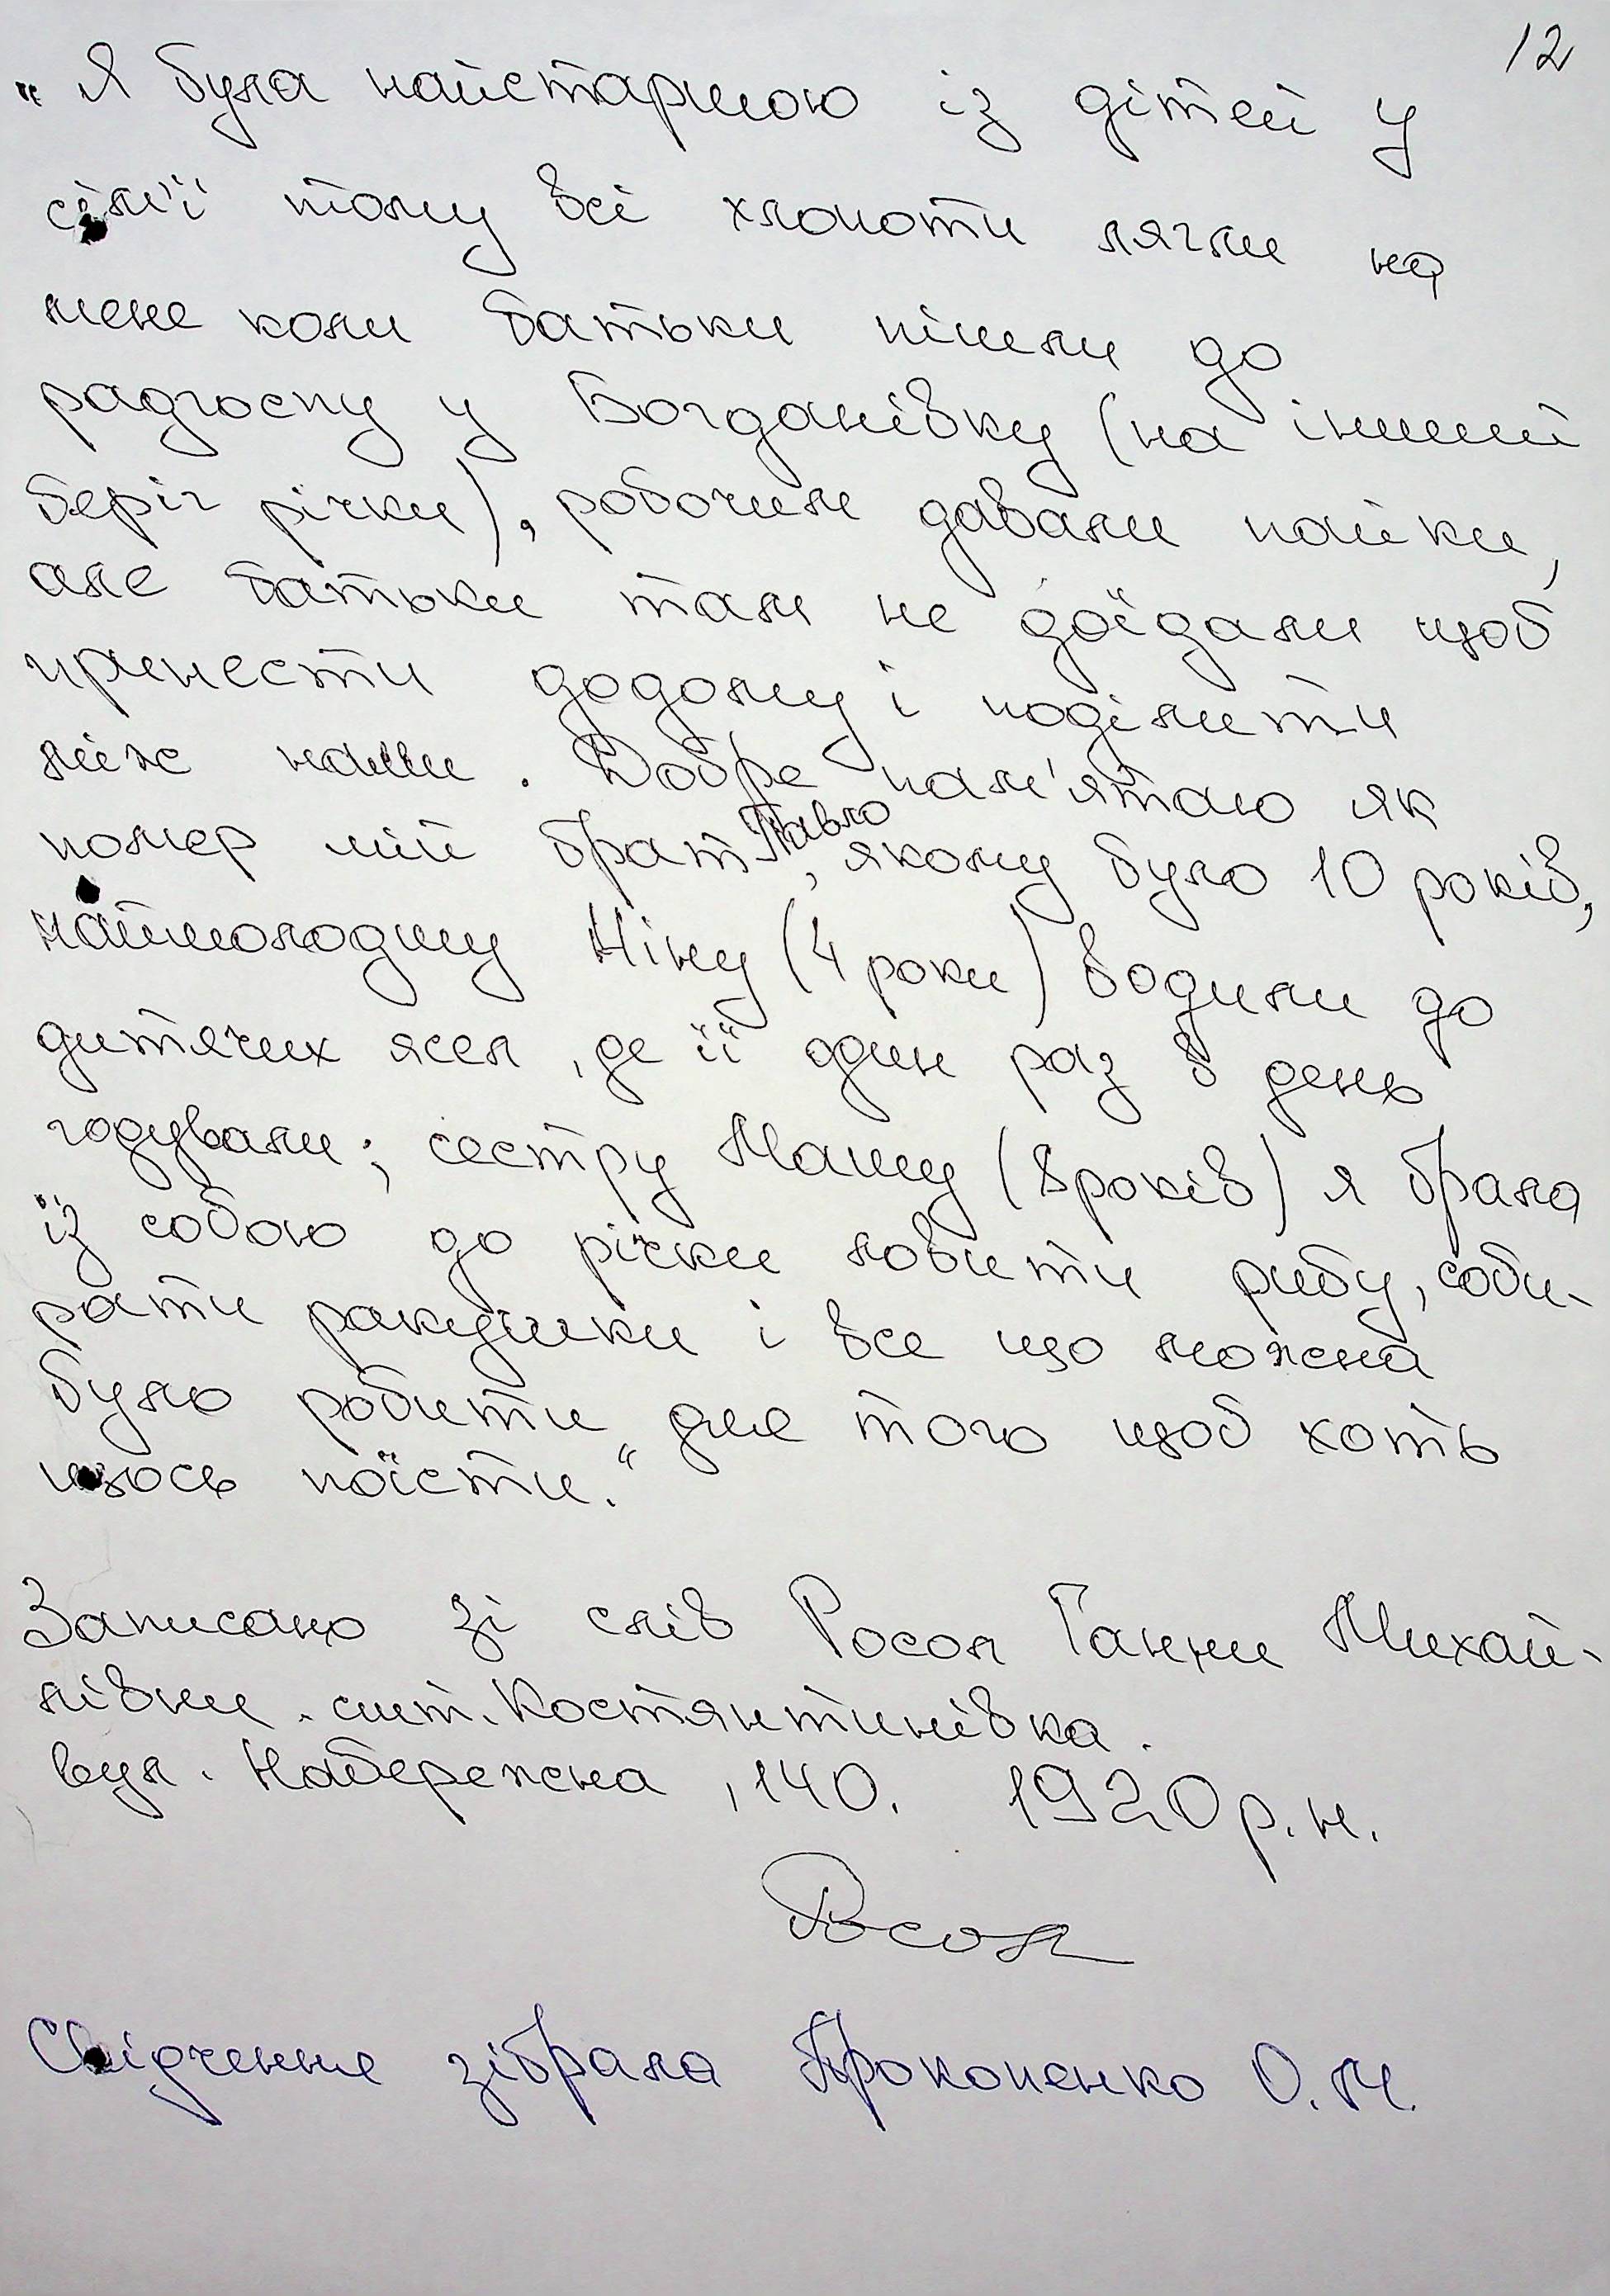 12
„Я була найстаршою із дітей у
сім'ї тому всі хлопоти лягли на
мене коли батьки пішли до
радгоспу у Богданівку (на інший
беріг річки), робочим давали пайки,
але батьки там не доїдали щоб
принести додому і поділити
між нами. Добре пам'ятаю як
помер мій брат Павло, якому було 10 років,
наймолодшу Ніну (4 роки) водили до
дитячих ясел, де її один раз в день
годували; сестру Машу (8 років) я брала
із собою до річки ловити рибу, соби-
рати ракушки і все що можна
було робити для того щоб хоть
щось поїсти.“
Записано зі слів Росол Ганни Михай-
лівни. смт. Костянтинівка.
вул. Набережна, 140. 1920 р.н.
Росол
Свідчення зібрала Прокопенко О.М.